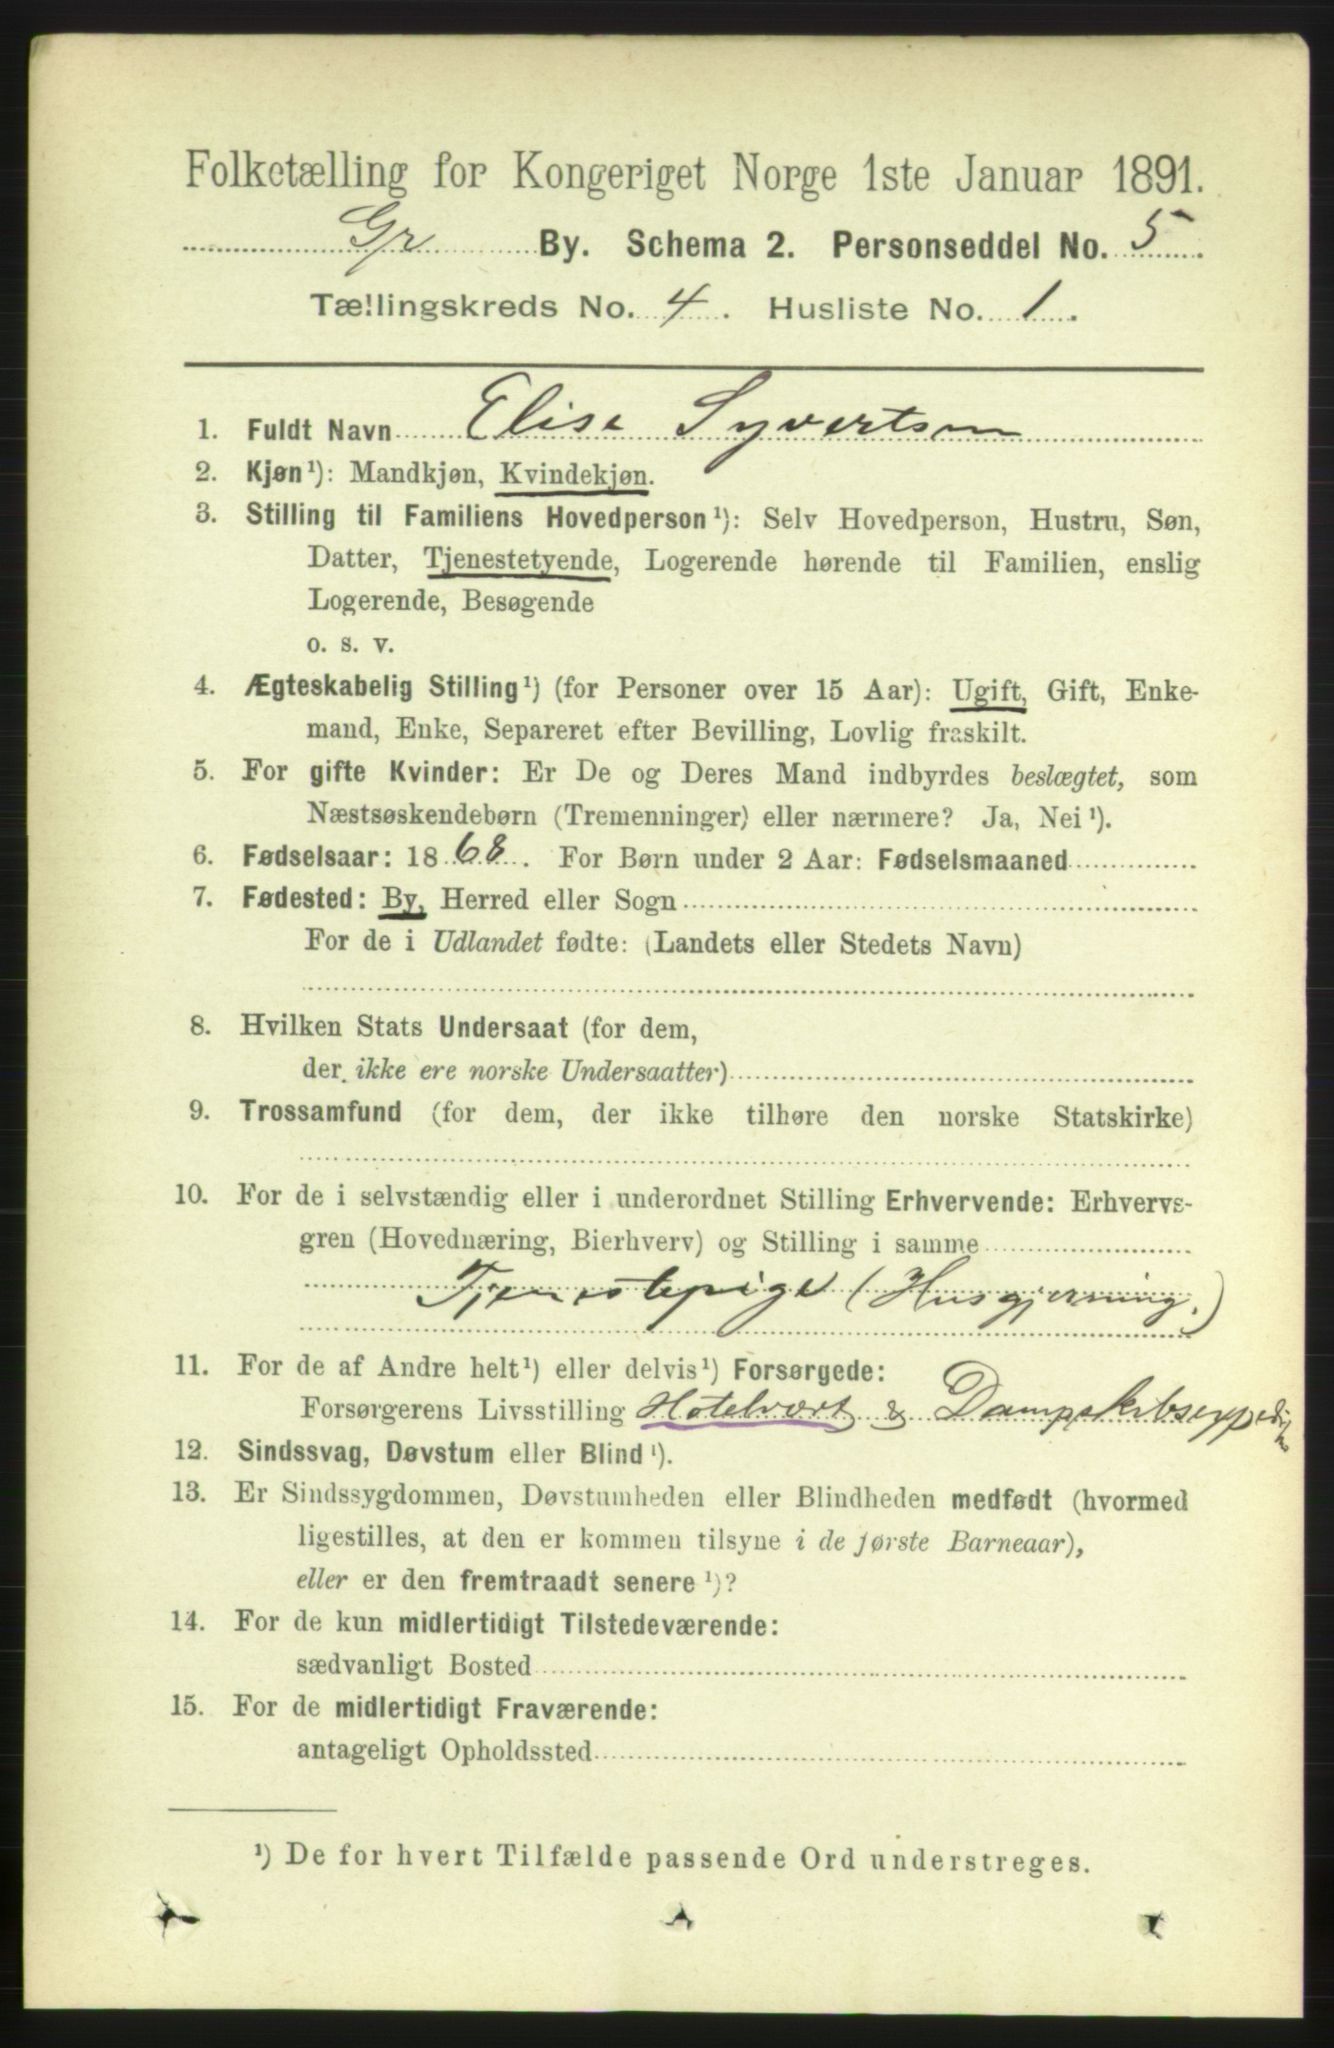 Folketælling for Kongeriget Norge 1ste Januar 1891.
Gr By. Schema 2. Personseddel No. 5
Tællingskreds No. 4. Husliste No. 1.
1. Fuldt Navn Elise Syvertsen
2. Kjøn¹): Mandkjøn, Kvindekjøn.
3. Stilling til Familiens Hovedperson¹): Selv Hovedperson, Hustru, Søn,
Datter, Tjenestetyende, Logerende hørende til Familien, enslig
Logerende, Besøgende
o. s. v.
4. Ægteskabelig Stilling¹) (for Personer over 15 Aar): Ugift, Gift, Enke-
mand, Enke, Separeret efter Bevilling, Lovlig fraskilt.
5. For gifte Kvinder: Er De og Deres Mand indbyrdes beslægtet, som
Næstsøskendebørn (Tremenninger) eller nærmere? Ja, Nei¹).
6. Fødselsaar: 1868. For Børn under 2 Aar: Fødselsmaaned
7. Fødested: By, Herred eller Sogn
For de i Udlandet fødte: (Landets eller Stedets Navn)
8. Hvilken Stats Undersaat (for dem,
der ikke ere norske Undersaatter)
9. Trossamfund (for dem, der ikke tilhøre den norske Statskirke)
10. For de i selvstændig eller i underordnet Stilling Erhvervende: Erhvervs-
gren (Hovednæring, Bierhverv) og Stilling i samme
Tjenestepige (Husgjerning.)
11. For de af Andre helt¹) eller delvis¹) Forsørgede:
Forsørgerens Livsstilling Hotelvært & 
12. Sindssvag, Døvstum eller Blind¹).
13. Er Sindssygdommen, Døvstumheden eller Blindheden medfødt (hvormed
ligestilles, at den er kommen tilsyne i de første Barneaar),
eller er den fremtraadt senere¹)?
14. For de kun midlertidigt Tilstedeværende:
sædvanligt Bosted
15. For de midlertidigt Fraværende:
antageligt Opholdssted
¹) De for hvert Tilfælde passende Ord understreges.